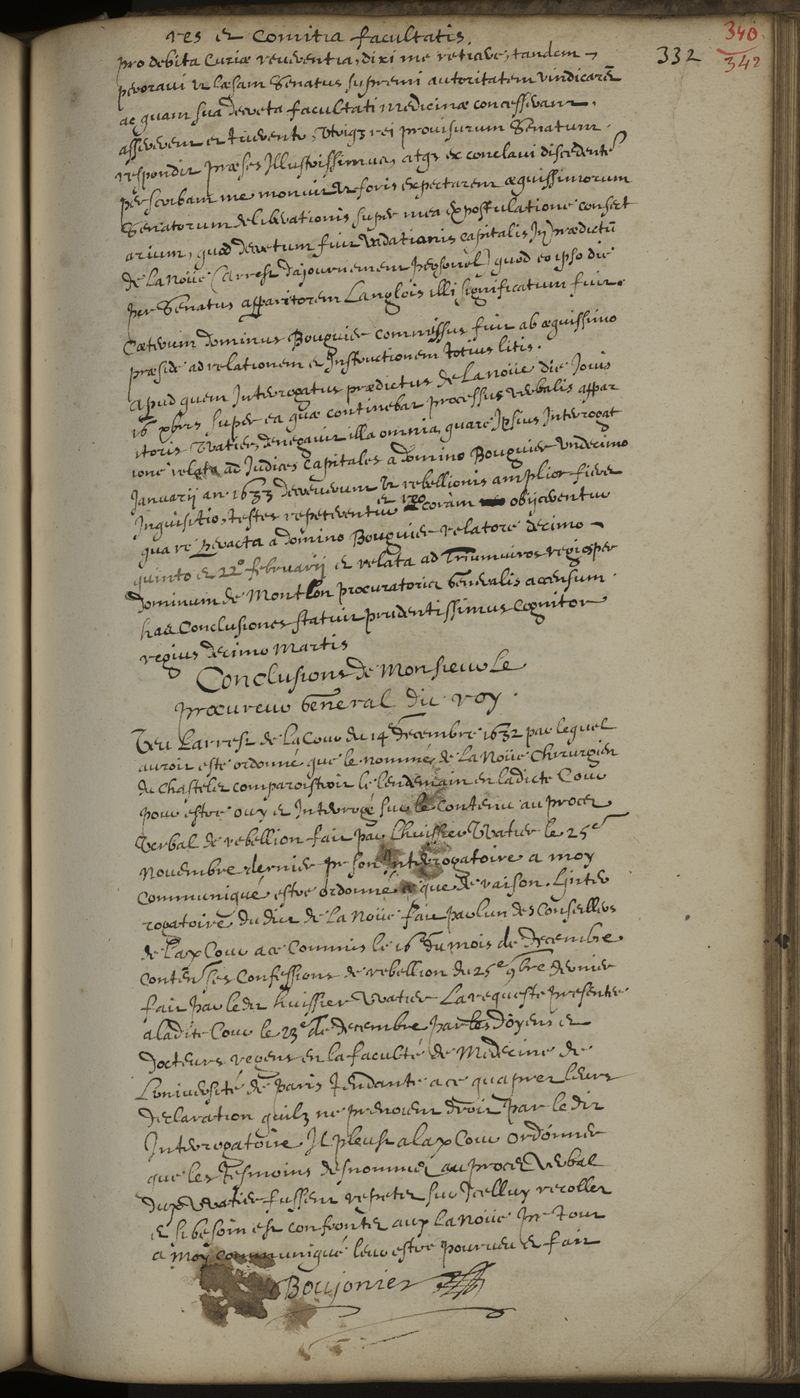 res et Comitia facultatis.
340.
342
332
pro debita Curiæ reverentia, dixi me retrave, tandem
peroravi ut læsam Senatus supremi autoritatem vindicarēt
ac quam sua decreta facultati medicinæ concesserant.
assererent et tuerentur, Utiqz rei provisurum Senatum
respondit præses Illustrissimus, atqz ex conclavi discedentē
per scribam me monuit ut foris expectarem æquissimorum
Senatorum deliberationis super mea expostulatione consect
arium, quod decretum fuit vadationis capitalis In prædictū
de la Noüe (Arrest d'ajournement personel) quod eo ipso die
per Senatus apparitorem Langlois illi significatum fuit.
Cæterum dominus Bouguier commissus fuit ab æquissimo
præside ad relationem et Instructionem totius litis.
Apud quem Interrogatus prædictus de la Noüe die Jovis
16 xbris super ea quæ continebat processus verbalis appar
itoris Vvatier, denegavit illa omnia, quare Ipsius Interrogat
ione relata ad Judices Capitales a domino Bouguier undecimo
Januarij an. 1633 decreverunt ut rebellionis amplior fieret
Inquisitio, testes repeterentur et reo coram obijcerentur
qua re peracta a domino Bouguier relatore decimo
quinto et 22º februarij et relata ad Triumviros regios per
dominum de Montlon procuratoris Generalis accensum
has Conclusiones statuit prudentissimus Cognitor
regius decimo Martis
Conclusions de Monsieur le
procureur General du roy.
Veu l'arrest de la Cour du 14 decembre 1632 par lequel
auroit esté ordonné que le nommé de la Noüe Chirurgien
du Chastelet comparoistroit le lendemain en ladicte Cour
pour estre ouy et Interrogé sur le contenu au procez
Verbal de rebellion fait par l'huissier Vvatier le 25e
Novembre dernier pr son Interrogatoire a moy
Communiqué estre ordonné ce que de raison. L'inter
rogatoire dudit de la Noüe fait par l'un des Conseillers
de lax Cour a ce Commis le 16 du mois de decembre
conten̄ ses Confessions de rebellion du 25e 9bre dernier
fait par ledit huissier Vvatier La requeste presentée
a ladite Cour le 23e de decembre par les Doyens et
Docteurs regens en la faculté de Medecine de
L'université de Paris tendante a ce qu'apres leurs
declaration quilz ne prenoient droit par ledit
Interrogatoire Il pleust a lax Cour ordonner
que les tesmoins desnommez au procez Verbal
dudx Vvatier fussent repetez sur Icelluy recollez
et si besoin est confrontez aux la Noüe Ce Jour
a moy communiqué leur estre pourveu et fait
Boujonier